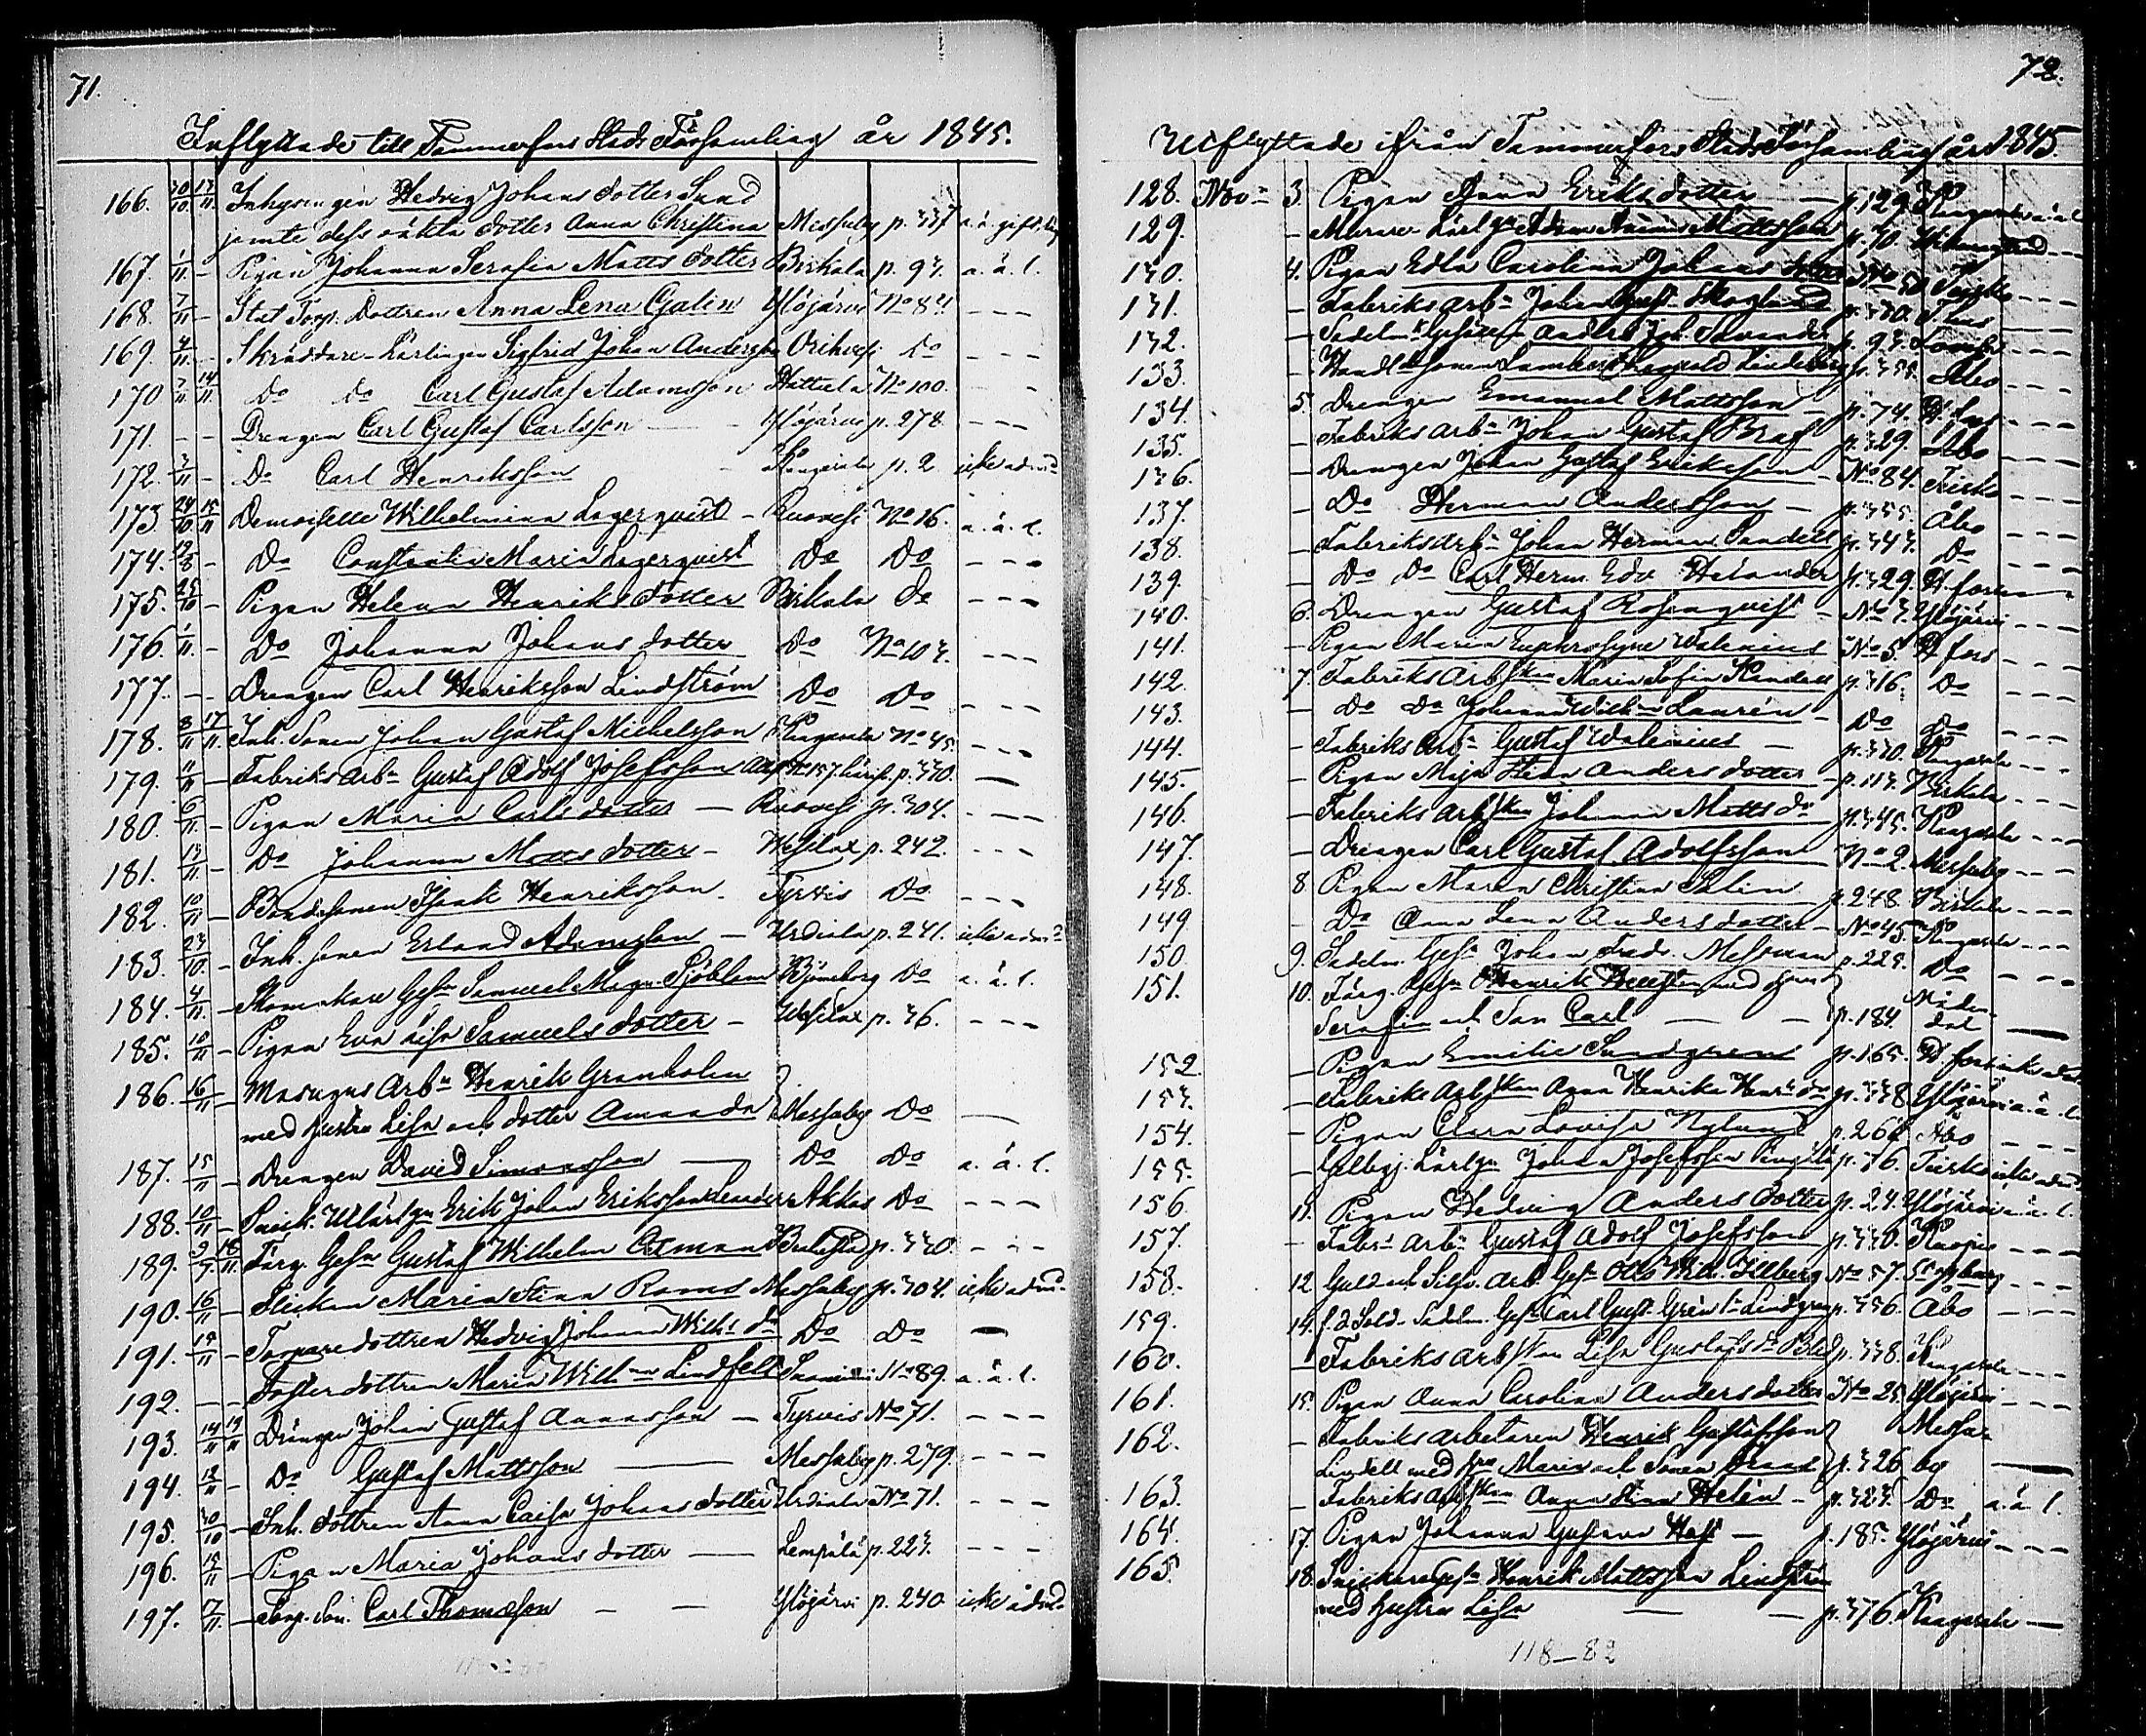 71.
Inflyttade till Tammerfors Stads Församling år 1845.
166. 30/10 17/11. Inhysingen Hedvig Johans dotter Lund
jemte dess oäkta dotter Anna Christina Messuby p. 337
167. 1/11 - Pigan Johanna Serafia Matts dotter Birkala p. 93. a. ä. l.
168. 7/11 - Stat Torp. Dottren Anna Lena Galin Ylöjärvi No 84 - - -
169. 4/11 - Skräddare-Lärlingen Sigfrid Johan Andersson Orihvesi do - - -
170 7/11 14/11 do do Carl Gustaf Adamsson Hattula No 100. - -
171. - - Drengen Carl Gustaf Carlsson - Ylöjärvi p. 278 - - -
172. 3/11 - Do Carl Henriksson Kangasala p. 2. icke adm.
173 24/10 15/11 Demoiselle Wilhelmina Lagerqvist - Ruovesi No 16. a. ä. l.
174. 19/8 - Do Constantia Maria Lagerqvist Do Do - - -
175. 25/10 - Pigan Helena Henriks dotter Birkala do - - -
176. 1/11. - Do Johanna Johans dotter Do No 103. - - -
177. - - Drengen Carl Henriksson Lindström Do Do - - -
178. 8/11 17/11. Inh. Sonen Johan Gustaf Michelsson Kangasala No 45 - - -
179. 11/11 - Fabriks Arbn Gustaf Adolf Josefsson p. 330. —
180. 6/11. - Pigan Maria Carls dotter — Ruovesi p. 304. - - -
181. 13/11. - Do Johanna Matts dotter - Wesilax p. 242. - - -
182. 10/11 - Bondesonen Isaak Henriksson - Tyrvis Do - - -
183. 23/10. - Inh. sonen Erland Adamsson — Urdiala p. 241. icke adm.
184. 4/11 - Skomakare Gesn Samuel Magn. Sjöblom Björneborg Do a. ä. l.
185. 10/11 - Pigan Eva Lisa Samuels dotter - Wesilax p. 36. - - -
186. 16/11 - Masugns Arbn Henrik Granholm
med hustru Lisa och dotter Amanda Messuby Do —
187. 15/11 - Drengen David Simonsson — Do Do a. ä. l.
188. 10/11 - Snick. Erik Johan Eriksson Akkas Do - - -
189. 9/9. 18/11. Färg. Gesn Gustaf Wilhelm p. 320. - - -
190. 16/11 - Flickan Maria Stina Roms Messuby p. 304. icke adm.
191. 14/11 - Torparedottren Hedvig Johanna Wilhs dr Do Do —
192. - - Fosterdottren Maria Wilhna Lindfelt No 89. a. ä. l.
193. 14/11 19/11 Drängen Johan Gustaf Annasson — Tyrvis No 71. - - -
194. 18/11 - Do Gustaf Mattsson — Messuby p. 279. - - -
195. 30/10 - Inh. dottren Anna Caisa Johans dotter Urdiala No 71. - - -
196. 15/11 - Pigan Maria Johans dotter — Lempälä p. 223. - - -
197. 17/11. - Torp. Son. Carl Thomasson - - Ylöjärvi p. 240 icke adm.
72.
Utflyttade ifrån Tammerfors Stads Församling år 1845.
128. Nov. 3. Pigan Anna Eriks dotter — p. 129 Kangasala a. ä. l.
129. - Murare-Lärlgn Adam Mattsson p. 70.
130. 4. Pigan Edla Carolina Johans dotter No 50 - - -
131. - Fabriks Arbn Johan Gust. Skoglund p. 330. - - -
132. - Sadelm. Gesällen Anders Joh. p. 93. - - -
133. - Handl. Sonen Lambert Leopold Lindeberg Åbo - - -
134. 5. Drengen Emanuel Mattsson - p. 74. H. fors - - -
135. - Fabriks Arbn Johan Gustaf p. 329. Åbo - - -
136. - Drengen Johan Gustaf Eriksson - No 84. - - -
137. - Do Herman Andersson - p. 355. Åbo - - -
138. - Fabriks Arbn Johan Herman p. 343. Do - - -
139. - Do Do Carl Herm. Edv. Helander p. 329. H. fors - - -
140. 6. Drengen Gustaf Rosenqvist - No 3. Ylöjärvi - - -
141. - Pigan Maria Euphrosyne Walenius No 5. H. fors - - -
142. 7. Fabriks Arbskan Maria Sofia p. 316. Do - - -
143. - Do Do Johanna Wilhna Laurén - Do Do - - -
144. - Fabriks Arbn Gustaf Walenius — p. 330. Kangasala - - -
145. - Pigan Maja Stina Anders dotter - p. 113. Birkala - - -
146. - Fabriks Arbskan Johanna Matts dr p. 345. Kangasala - - -
147. - Drengen Carl Gustaf Adolfsson No 2. Messuby - - -
148. 8 Pigan Maria Christina Salin p. 248. Birkala - - -
149 - Do Anna Lena Anders dotter - No 45. Kangasala - - -
150. 9. Sadelm. Gesn Johan Fredr. Messman p. 225. Do - - -
151. 10. Färg. Gesn Henrik med hustru
Serafia och Son Carl — — p. 184. Nådendal —
152 - Pigan Emilie Sundgren p. 165. H. fors icke adm.
153. - Fabriks Arbskan Anna Henrika Henr. dr p. 338. Ylöjärvi a. ä. l.
154. - Pigan Clara Lovisa Nylund p. 262. Åbo - - -
155. - Gelbgj. Lärlgn Johan Josefsson p. 76. icke adm.
156. 11. Pigan Hedvig Anders dotter p. 24. Ylöjärvi a. ä. l.
157. - Fabrs Arbn Gustaf Adolf Josefsson p. 330. Kuopio - - -
158. 12. Guld och Silfv. Arb. Gesn Otto Wilh. Illberg No 57. - - -
159. 14. f. d Sold. Sadelm. Gesn Carl Gust. Grén l. Lindgren p. 356. Åbo - - -
160. - Fabriks Arbskan Lisa Gustafs dr p. 338. Kangasala - - -
161. 15. Pigan Anna Carolina Anders dotter No 25. Ylöjärvi - - -
162. - Fabriks Arbetaren Henrik Gustafsson
Lindell med hru Maria och Sonen p. 326 Messuby —
163. - Fabriks Arbskan Anna Stina Helén - p. 323. Do a. ä. l.
164. 17. Pigan Johanna Gustava — p. 185. Ylöjärvi - - -
165. 18. Snickare Gesn Henrik Mattsson Lindström
med hustru Lisa — — p. 376. Kangasala —
118-82